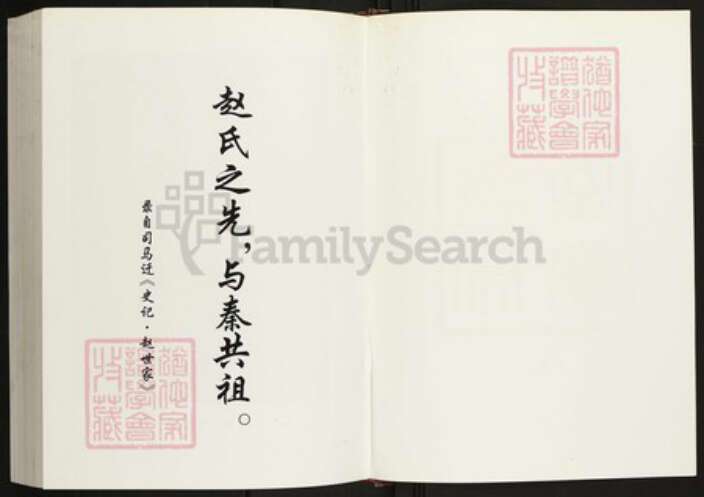 赵氏之先，与秦共祖。
录自司马迁《史记·赵世家》
FamilySearch
猶他家
譜學會
特藏
猶他家
譜學會
特藏